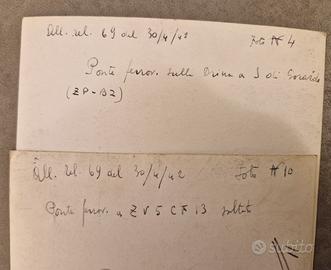 All. rel. 69 del 30/4/42 Foto N 4
Ponte ferrov. sulla Drina a S di Gorazde
(ZP-BZ)
All. rel. 69 del 30/4/42 Foto N 10
Ponte ferrov. a ZV5CF13 saltato
subito